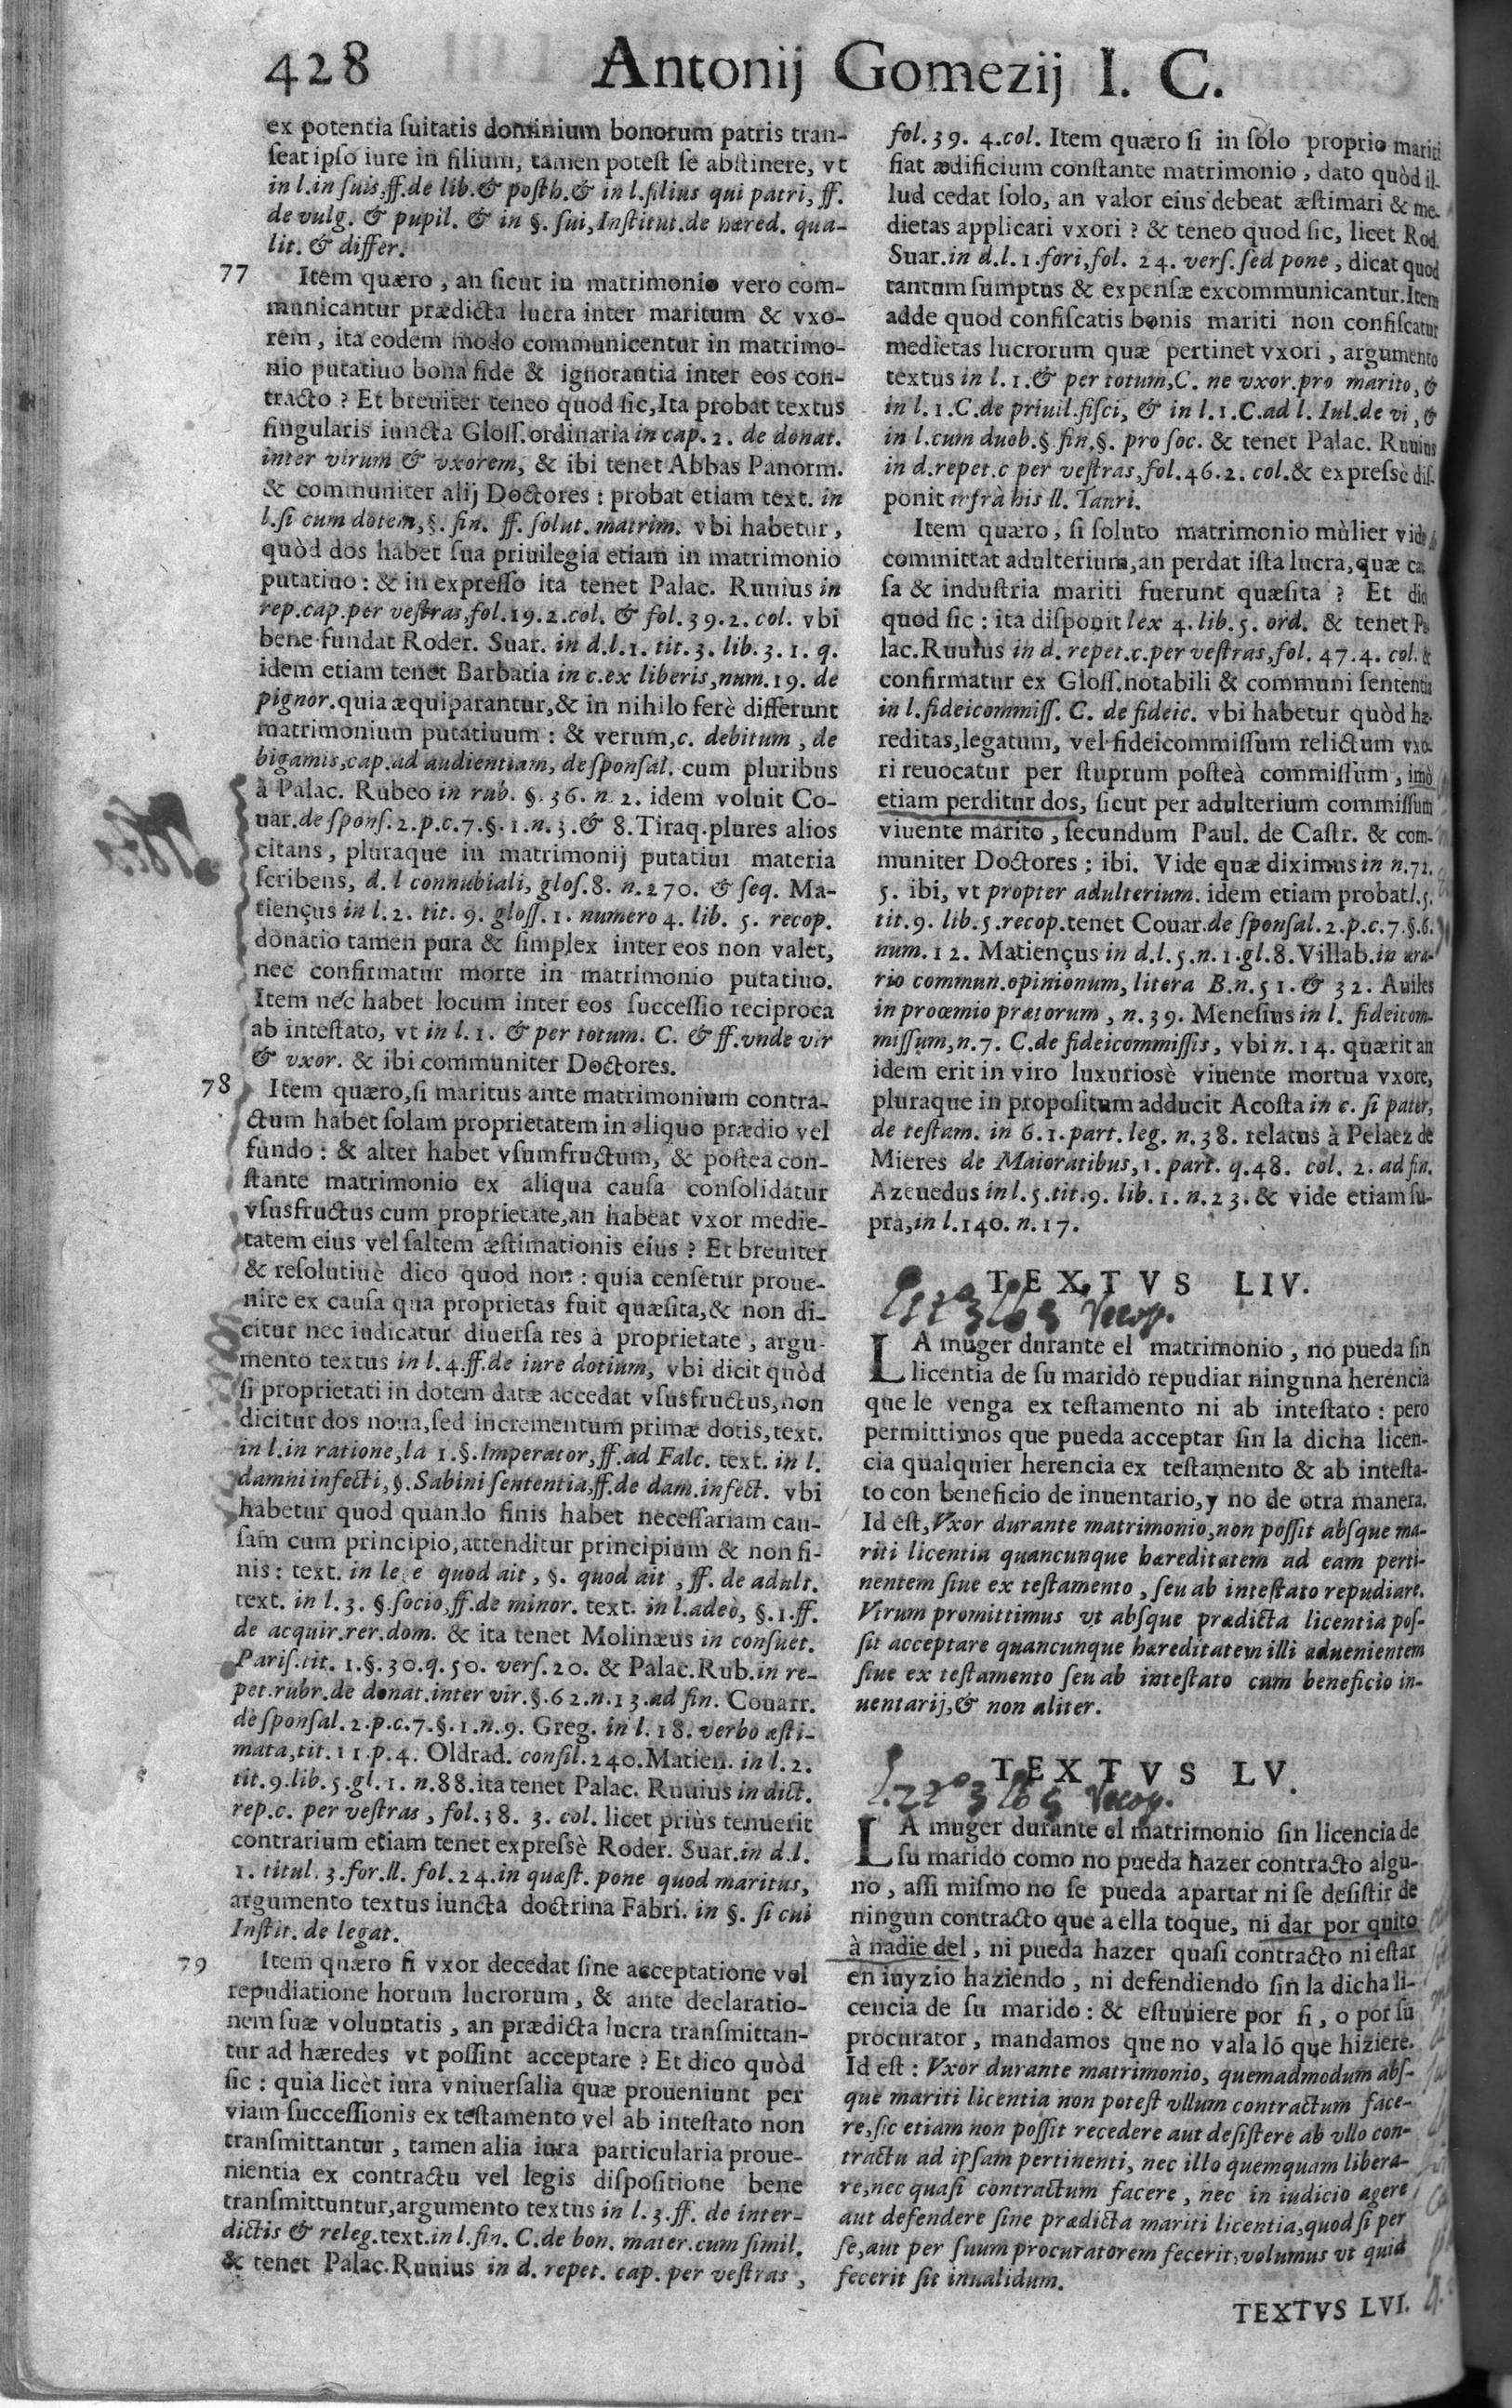 428 Antonij Gomezij I. C.
ex potentia ſuitatis dominium bonorum patris tran-
ſeat ipſo iure in filium, tamen poteſt ſe abſtinere, vt
in l. in ſuis. ff. de lib. & poſth. & in l. filius qui patri, ff.
de vulg. & pupil. & in §. ſui, Inſtitut. de hæred. qua-
lit. & differ.
77 Item quæro, an ſicut in matrimonio vero com-
municantur prædicta lucra inter maritum & vxo-
rem, ita eodem modo communicentur in matrimo-
nio putatiuo bona fide & ignorantia inter eos con-
tracto? Et breuiter teneo quod ſic, Ita probat textus
ſingularis iuncta Gloſſ. ordinaria in cap. 2. de donat.
inter virum & vxorem, & ibi tenet Abbas Panorm.
& communiter alij Doctores: probat etiam text. in
l. ſi cum dotem, §. fin. ff. ſolut. matrim. vbi habetur,
quòd dos habet ſua priuilegia etiam in matrimonio
putatiuo: & in expreſſo ita tenet Palac. Ruuius in
rep. cap. per veſtras, fol. 19. 2. col. & fol. 39. 2. col. vbi
bene fundat Roder. Suar. in d. l. 1. tit. 3. lib. 3. 1. q.
idem etiam tenet Barbatia in c. ex liberis, num. 19. de
pignor. quia æquiparantur, & in nihilo ferè differunt
matrimonium putatiuum: & verum, c. debitum, de
bigamis, cap. ad audientiam, de ſponſal. cum pluribus
à Palac. Rubeo in rub. §. 36. n. 2. idem voluit Co-
uar. de ſponſ. 2. p. c. 7. §. 1. n. 3. & 8. Tiraq. plures alios
citans, pluraque in matrimonij putatiui materia
ſcribens, d. l connubiali, gloſ. 8. n. 270. & ſeq. Ma-
tiençus in l. 2. tit. 9. gloſſ. 1. numero 4. lib. 5. recop.
donatio tamen pura & ſimplex inter eos non valet,
nec confirmatur morte in matrimonio putatiuo.
Item nec habet locum inter eos ſucceſſio reciproca
ab inteſtato, vt in l. 1. & per totum. C. & ff. vnde vir
& vxor. & ibi communiter Doctores.
78 Item quæro, ſi maritus ante matrimonium contra-
ctum habet ſolam proprietatem in aliquo prædio vel
fundo: & alter habet vſumfructum, & poſtea con-
ſtante matrimonio ex aliqua cauſa conſolidatur
vſusfructus cum proprietate, an habeat vxor medie-
tatem eius vel ſaltem æſtimationis eius? Et breuiter
& reſolutiuè dico quod non: quia cenſetur proue-
nire ex cauſa qua proprietas fuit quæſita, & non di-
citur nec iudicatur diuerſa res à proprietate, argu-
mento textus in l. 4. ff. de iure dotium, vbi dicit quòd
ſi proprietati in dotem datæ accedat vſusfructus, non
dicitur dos noua, ſed incrementum primæ dotis, text.
in l. in ratione, la 1. §. Imperator, ff. ad Falc. text. in l.
damni infecti, §. Sabini ſententia, ff. de dam. infect. vbi
habetur quod quando finis habet neceſſariam cau-
ſam cum principio, attenditur principium & non fi-
nis: text. in lege quod ait, §. quod ait, ff. de adult.
text. in l. 3. §. ſocio, ff. de minor. text. in l. adeò, §. 1. ff.
de acquir. rer. dom. & ita tenet Molinæus in conſuet.
Pariſ. tit. 1. §. 30. q. 50. verſ. 20. & Palac. Rub. in re-
pet. rubr. de donat. inter vir. §. 62. n. 13. ad fin. Couarr.
de ſponſal. 2. p. c. 7. §. 1. n. 9. Greg. in l. 18. verbo æſti-
mata, tit. 11. p. 4. Oldrad. conſil. 240. Matien. in l. 2.
tit. 9. lib. 5. gl. 1. n. 88. ita tenet Palac. Ruuius in dict.
rep. c. per veſtras, fol. 38. 3. col. licet priùs tenuerit
contrarium etiam tenet expreſsè Roder. Suar. in d. l.
1. titul. 3. for. ll. fol. 24. in quæſt. pone quod maritus,
argumento textus iuncta doctrina Fabri. in §. ſi cui
Inſtit. de legat.
79 Item quæro ſi vxor decedat ſine acceptatione vel
repudiatione horum lucrorum, & ante declaratio-
nem ſuæ voluntatis, an prædicta lucra tranſmittan-
tur ad hæredes vt poſſint acceptare? Et dico quòd
ſic: quia licèt iura vniuerſalia quæ proueniunt per
viam ſucceſſionis ex teſtamento vel ab inteſtato non
tranſmittantur, tamen alia iura particularia proue-
nientia ex contractu vel legis diſpoſitione bene
tranſmittuntur, argumento textus in l. 3. ff. de inter-
dictis & releg. text. in l. fin. C. de bon. mater. cum ſimil.
& tenet Palac. Ruuius in d. repet. cap. per veſtras,
fol. 39. 4. col. Item quæro ſi in ſolo proprio mariti
fiat ædificium conſtante matrimonio, dato quòd il-
lud cedat ſolo, an valor eius debeat æſtimari & me-
dietas applicari vxori? & teneo quod ſic, licet Rod.
Suar. in d. l. 1. fori, fol. 24. verſ. ſed pone, dicat quod
tantum ſumptus & expenſæ excommunicantur. Item
adde quod confiſcatis bonis mariti non confiſcatur
medietas lucrorum quæ pertinet vxori, argumento
textus in l. 1. & per totum, C. ne vxor. pro marito, &
in l. 1. C. de priuil. fiſci, & in l. 1. C. ad l. Iul. de vi, &
in l. cum duob. § fin. §. pro ſoc. & tenet Palac. Ruuius
in d. repet. c per veſtras, fol. 46. 2. col. & expreſsè diſ-
ponit infrà his ll. Tauri.
Item quæro, ſi ſoluto matrimonio mùlier vidua
committat adulterium, an perdat iſta lucra, quæ cau
ſa & induſtria mariti fuerunt quæſita? Et dico
quod ſic: ita diſponit lex 4. lib. 5. ord. & tenet Pa
lac. Ruuius in d. repet. c. per veſtras, fol. 47. 4. col. &
confirmatur ex Gloſſ. notabili & communi ſententia
in l. fideicommiſſ. C. de fideic. vbi habetur quòd hæ-
reditas, legatum, vel fideicommiſſum relictum vxo-
ri reuocatur per ſtuprum poſteà commiſſum, imò
etiam perditur dos, ſicut per adulterium commiſſum
viuente marito, ſecundum Paul. de Caſtr. & com-
muniter Doctores: ibi. Vide quæ diximus in n. 72.
5. ibi, vt propter adulterium. idem etiam probat l. 5.
tit. 9. lib. 5. recop. tenet Couar. de ſponſal. 2. p. c. 7. §. 6.
num. 12. Matiençus in d. l. 5. n. 1. gl. 8. Villab. in æra-
rio commun. opinionum, litera B. n. 51. & 32. Auiles
in proœmio prætorum, n. 39. Meneſius in l. fideicom-
miſſum, n. 7. C. de fideicommiſſis, vbi n. 14. quærit an
idem erit in viro luxuriosè viuente mortua vxore,
pluraque in propoſitum adducit Acoſta in c. ſi pater,
de teſtam. in 6. 1. part. leg. n. 38. relatus à Pelaez de
Mieres de Maioratibus, 1. part. q. 48. col. 2. ad fin.
Azeuedus in l. 5. tit. 9. lib. 1. n. 23. & vide etiam ſu-
prà, in l. 140. n. 17.
TEXTVS LIV.
LA muger durante el matrimonio, no pueda ſin
licentia de ſu marido repudiar ninguna herencia
que le venga ex teſtamento ni ab inteſtato: pero
permittimos que pueda acceptar ſin la dicha licen-
cia qualquier herencia ex teſtamento & ab inteſta-
to con beneficio de inuentario, y no de otra manera.
Id eſt, Vxor durante matrimonio, non poſſit abſque ma-
riti licentia quancunque hæreditatem ad eam perti-
nentem ſiue ex teſtamento, ſeu ab inteſtato repudiare.
Virum promittimus vt abſque prædicta licentia poſ-
ſit acceptare quancunque hæreditatem illi aduenientem
ſiue ex teſtamento ſeu ab inteſtato cum beneficio in-
uentarij, & non aliter.
TEXTVS LV.
LA muger durante el matrimonio ſin licencia de
ſu marido como no pueda hazer contracto algu-
no, aſſi miſmo no ſe pueda apartar ni ſe deſiſtir de
ningun contracto que a ella toque, ni dar por quito
à nadie del, ni pueda hazer quaſi contracto ni eſtar
en iuyzio haziendo, ni defendiendo ſin la dicha li-
cencia de ſu marido: & eſtuuiere por ſi, o por ſu
procurator, mandamos que no vala lo que hiziere.
Id eſt: Vxor durante matrimonio, quemadmodum abſ-
que mariti licentia non poteſt vllum contractum face-
re, ſic etiam non poſſit recedere aut deſiſtere ab vllo con-
tractu ad ipſam pertinenti, nec illo quemquam libera-
re, nec quaſi contractum facere, nec in iudicio agere
aut defendere ſine prædicta mariti licentia, quod ſi per
ſe, aut per ſuum procuratorem fecerit, volumus vt quid
fecerit ſit inualidum.
TEXTVS LVI.